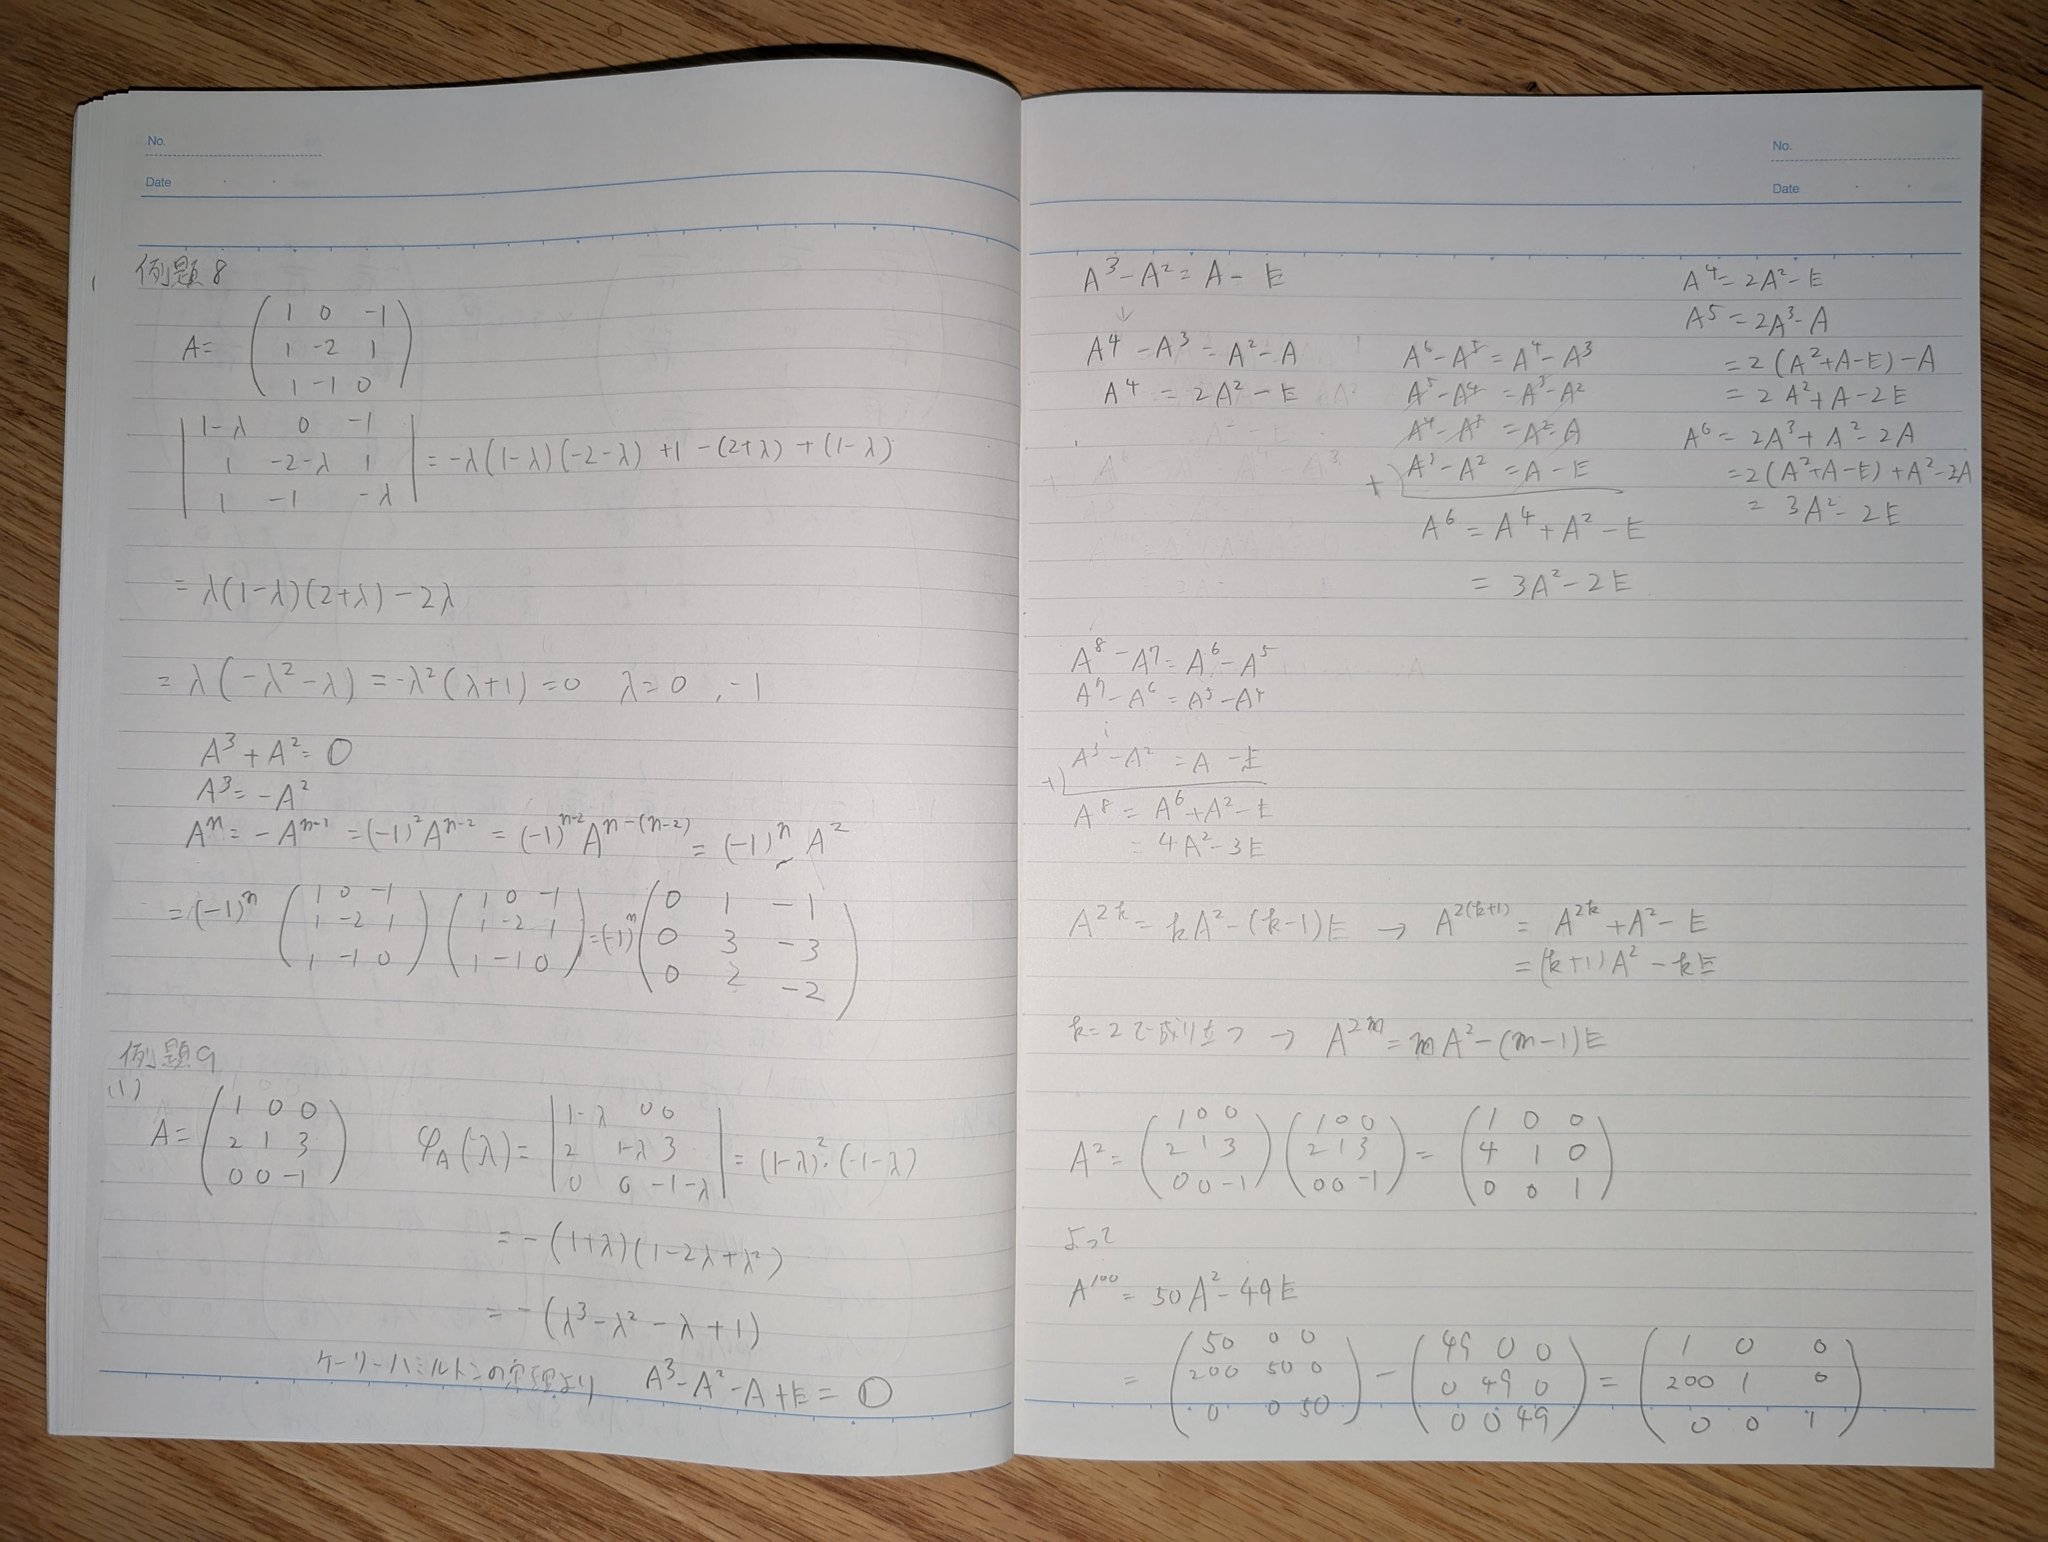 No.
Date
例題8
A = ( 1 0 -1 / 1 -2 1 / 1 -1 0 )
| 1-λ 0 -1 / 1 -2-λ 1 / 1 -1 -λ | = -λ(1-λ)(-2-λ) +1 -(2+λ) + (1-λ)
= λ(1-λ)(2+λ) - 2λ
= λ(-λ² - λ) = -λ²(λ+1) = 0 λ=0 , -1
A³ + A² = O
A³ = -A²
Aⁿ = -Aⁿ⁻¹ = (-1)²Aⁿ⁻² = (-1)ⁿ⁻²Aⁿ⁻⁽ⁿ⁻²⁾ = (-1)ⁿ A²
= (-1)ⁿ ( 1 0 -1 / 1 -2 1 / 1 -1 0 ) ( 1 0 -1 / 1 -2 1 / 1 -1 0 ) = (-1)ⁿ ( 0 1 -1 / 0 3 -3 / 0 2 -2 )
例題9
(1)
A = ( 1 0 0 / 2 1 3 / 0 0 -1 ) φ_A(λ) = | 1-λ 0 0 / 2 1-λ 3 / 0 0 -1-λ | = (1-λ)²・(-1-λ)
= -(1+λ)(1-2λ+λ²)
= -(λ³ - λ² - λ + 1)
ケーリーハミルトンの定理より A³ - A² - A + E = O
No.
Date
A³ - A² = A - E
↓
A⁴ - A³ = A² - A
A⁴ = 2A² - E
A⁶ - A⁵ = A⁴ - A³
A⁵ - A⁴ = A³ - A²
A⁴ - A³ = A² - A
+) A³ - A² = A - E
A⁶ = A⁴ + A² - E
= 3A² - 2E
A⁴ = 2A² - E
A⁵ = 2A³ - A
= 2(A² + A - E) - A
= 2A² + A - 2E
A⁶ = 2A³ + A² - 2A
= 2(A² + A - E) + A² - 2A
= 3A² - 2E
A⁸ - A⁷ = A⁶ - A⁵
A⁷ - A⁶ = A⁵ - A⁴
⋮
+) A³ - A² = A - E
A⁸ = A⁶ + A² - E
= 4A² - 3E
A²ᵏ = kA² - (k-1)E → A²⁽ᵏ⁺¹⁾ = A²ᵏ + A² - E
= (k+1)A² - kE
k=2で成り立つ → A²ᵐ = mA² - (m-1)E
A² = ( 1 0 0 / 2 1 3 / 0 0 -1 ) ( 1 0 0 / 2 1 3 / 0 0 -1 ) = ( 1 0 0 / 4 1 0 / 0 0 1 )
よって
A¹⁰⁰ = 50A² - 49E
= ( 50 0 0 / 200 50 0 / 0 0 50 ) - ( 49 0 0 / 0 49 0 / 0 0 49 ) = ( 1 0 0 / 200 1 0 / 0 0 1 )